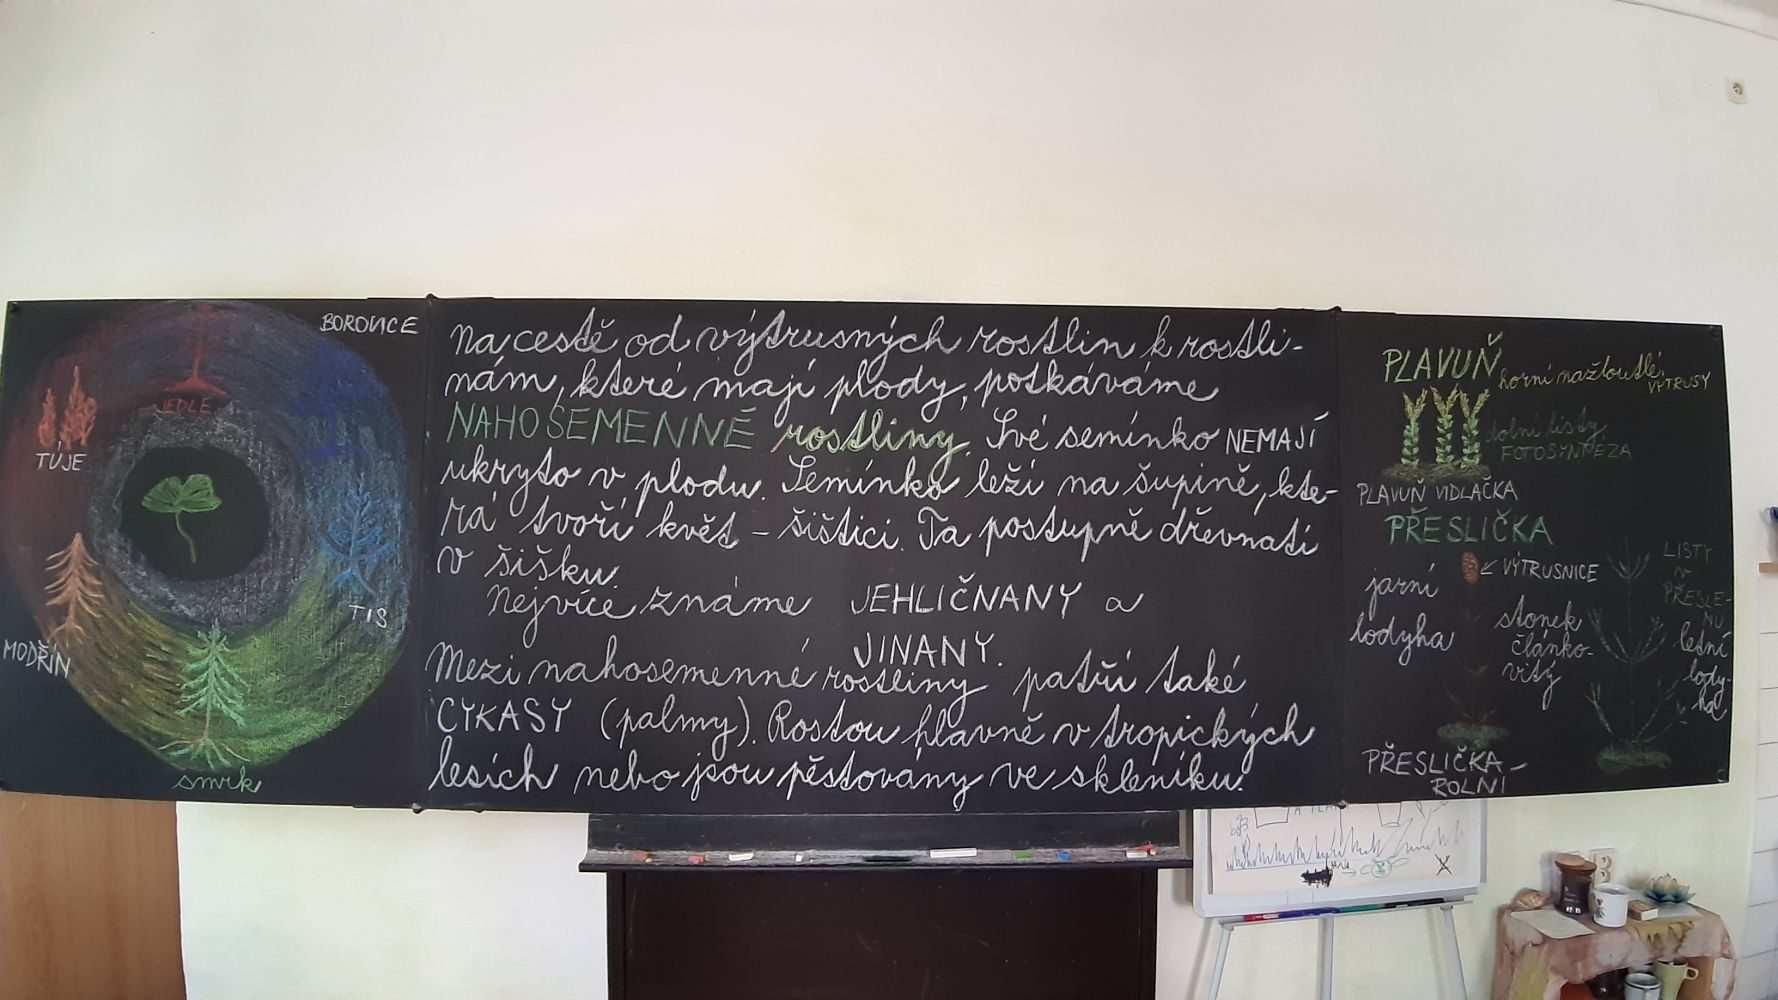 BOROVICE
JEDLE
TÚJE
TIS
MODŘÍN
smrk
Na cestě od výtrusných rostlin k rostli-
nám, které mají plody, potkáváme
NAHOSEMENNÉ rostliny. Své semínko NEMAJÍ
ukryto v plodu. Semínko leží na šupině, kte-
rá tvoří květ - šištici. Ta postupně dřevnatí
v šišku.
Nejvíce známe JEHLIČNANY a
JINANY.
Mezi nahosemenné rostliny patří také
CYKASY (palmy). Rostou hlavně v tropických
lesích nebo jsou pěstovány ve skleníku.
PLAVUŇ
horní nažloutlé
VÝTRUSY
dolní listy
FOTOSYNTÉZA
PLAVUŇ VIDLAČKA
PŘESLIČKA
VÝTRUSNICE
jarní
lodyha
stonek
článko-
vitý
LISTY
v
PŘESLE-
NU
letní
lody-
ha
PŘESLIČKA -
ROLNÍ